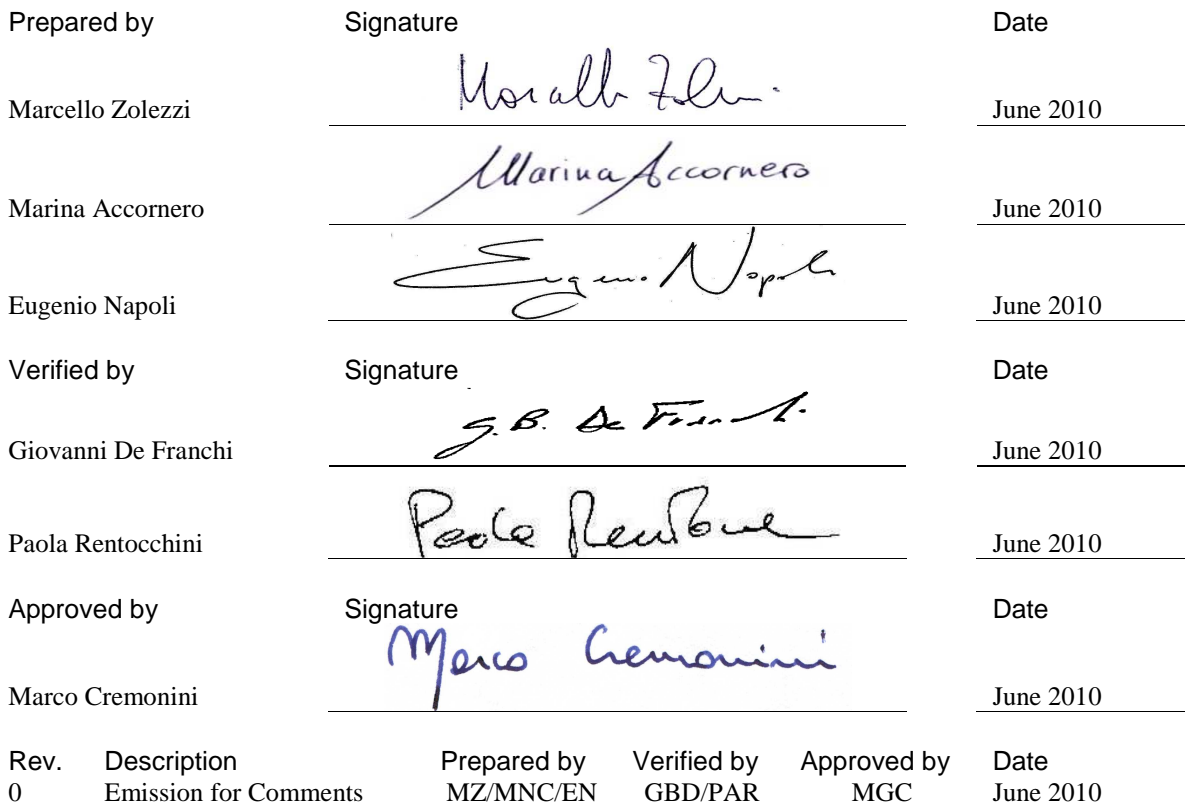 Prepared by Signature Date
Marcello Zolezzi June 2010
Marina Accornero
Marina Accornero June 2010
Eugenio Napoli
Eugenio Napoli June 2010
Verified by Signature Date
G.B. De Franchi
Giovanni De Franchi June 2010
Paola
Paola Rentocchini June 2010
Approved by Signature Date
Marco Cremonini
Marco Cremonini June 2010
Rev. Description Prepared by Verified by Approved by Date
0 Emission for Comments MZ/MNC/EN GBD/PAR MGC June 2010